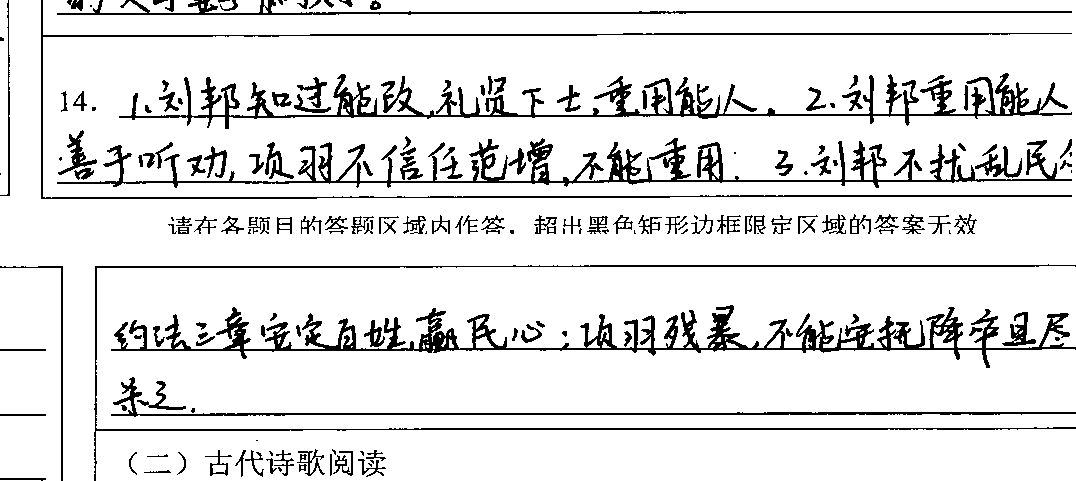 14. 1.刘邦知过能改,礼贤下士,重用能人. 2.刘邦重用能人
善于听劝,项羽不信任范增,不能重用. 3.刘邦不扰乱民
请在各题目的答题区域内作答,超出黑色矩形边框限定区域的答案无效
约法三章安定百姓,赢民心;项羽残暴,不能安抚降卒且尽
杀之.
(二)古代诗歌阅读